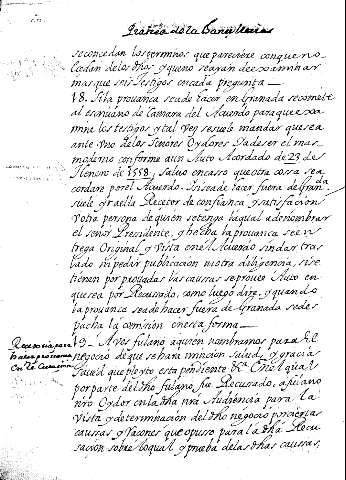 Pratica de la Chancilleria
se concedan los terminos que pareciere con que no
excedan de los dhos, y que no se ayan de examinar
mas que seis testigos en cada pregunta —
18. Si la provança se a de hacer en Granada se comete
al escrivano de Camara del Acuerdo para que exa-
mine los testigos, y tal vez se suele mandar que sea
ante uno de los Señores Oydores y a de ser el mas
moderno conforme a un Auto Acordado de 23 de
Henero de 1558, salvo en caso que otra cosa se a
cordare por el Acuerdo. Y si se a de hacer fuera de Granada
suele yr a ella Recetor de confiança, y satisfacion
v otra persona de quien se tenga la qual a de nombrar
el señor Presidente, y hecha la provança se en
trega Original, y vista en el Acuerdo sin dar tras
lado ni pedir publicacion ni otra diligencia, si se
tienen por provadas las caussas se provee Auto en
que sea por Recusado, como luego dire, y quando
la provança se a de hacer fuera de Granada se des
pacha la comision en esta forma —
Receutoria para
hacer provança
en la
19. A vos fulano a quien nombramos para el
negocio de que se hara mincion Salud, y gracia
Saved que pleyto esta pendiente &c. En el qual
por parte del dho fulano, fue Recusado, a fulano
nro Oydor en la dha nra Audiencia para la
vista y determinacion del dho negocio por ciertas
caussas, y raçones que opusso para la dha Recu
sacion sobre lo qual, y prueba de las dhas caussas,